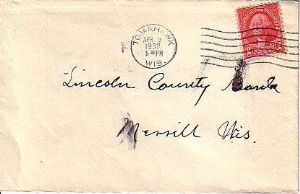 TOMAHAWK
APR 9
1932
5 PM
WIS.
Lincoln County Bank
Merrill Wis.